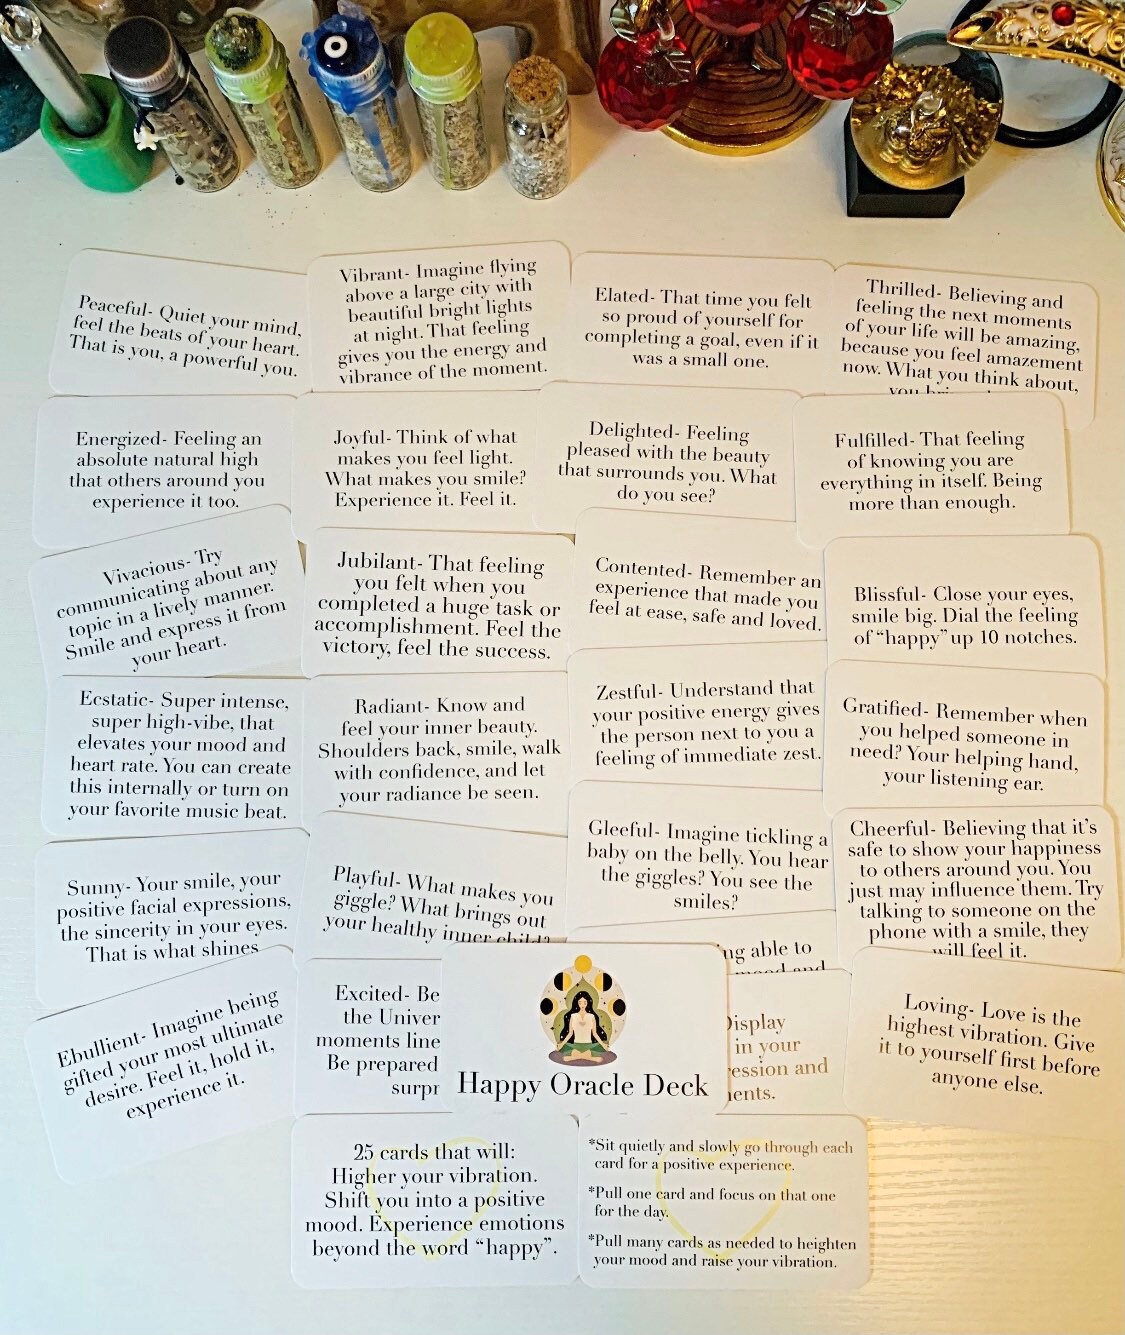 Peaceful- Quiet your mind,
feel the beats of your heart.
That is you, a powerful you.
Vibrant- Imagine flying
above a large city with
beautiful bright lights
at night. That feeling
gives you the energy and
vibrance of the moment.
Elated- That time you felt
so proud of yourself for
completing a goal, even if it
was a small one.
Thrilled- Believing and
feeling the next moments
of your life will be amazing,
because you feel amazement
now. What you think about,
you
Energized- Feeling an
absolute natural high
that others around you
experience it too.
Joyful- Think of what
makes you feel light.
What makes you smile?
Experience it. Feel it.
Delighted- Feeling
pleased with the beauty
that surrounds you. What
do you see?
Fulfilled- That feeling
of knowing you are
everything in itself. Being
more than enough.
Vivacious- Try
communicating about any
topic in a lively manner.
Smile and express it from
your heart.
Jubilant- That feeling
you felt when you
completed a huge task or
accomplishment. Feel the
victory, feel the success.
Contented- Remember an
experience that made you
feel at ease, safe and loved.
Blissful- Close your eyes,
smile big. Dial the feeling
of “happy” up 10 notches.
Ecstatic- Super intense,
super high-vibe, that
elevates your mood and
heart rate. You can create
this internally or turn on
your favorite music beat.
Radiant- Know and
feel your inner beauty.
Shoulders back, smile, walk
with confidence, and let
your radiance be seen.
Zestful- Understand that
your positive energy gives
the person next to you a
feeling of immediate zest.
Gratified- Remember when
you helped someone in
need? Your helping hand,
your listening ear.
Sunny- Your smile, your
positive facial expressions,
the sincerity in your eyes.
That is what shines
Playful- What makes you
giggle? What brings out
your healthy inner child?
Gleeful- Imagine tickling a
baby on the belly. You hear
the giggles? You see the
smiles?
Cheerful- Believing that it’s
safe to show your happiness
to others around you. You
just may influence them. Try
talking to someone on the
phone with a smile, they
will feel it.
able to
mood and
Ebullient- Imagine being
gifted your most ultimate
desire. Feel it, hold it,
experience it.
Excited- Be
the Univer
moments line
Be prepared
surpr
Display
in your
ession and
ents.
Loving- Love is the
highest vibration. Give
it to yourself first before
anyone else.
Happy Oracle Deck
25 cards that will:
Higher your vibration.
Shift you into a positive
mood. Experience emotions
beyond the word “happy”.
*Sit quietly and slowly go through each
card for a positive experience.
*Pull one card and focus on that one
for the day.
*Pull many cards as needed to heighten
your mood and raise your vibration.